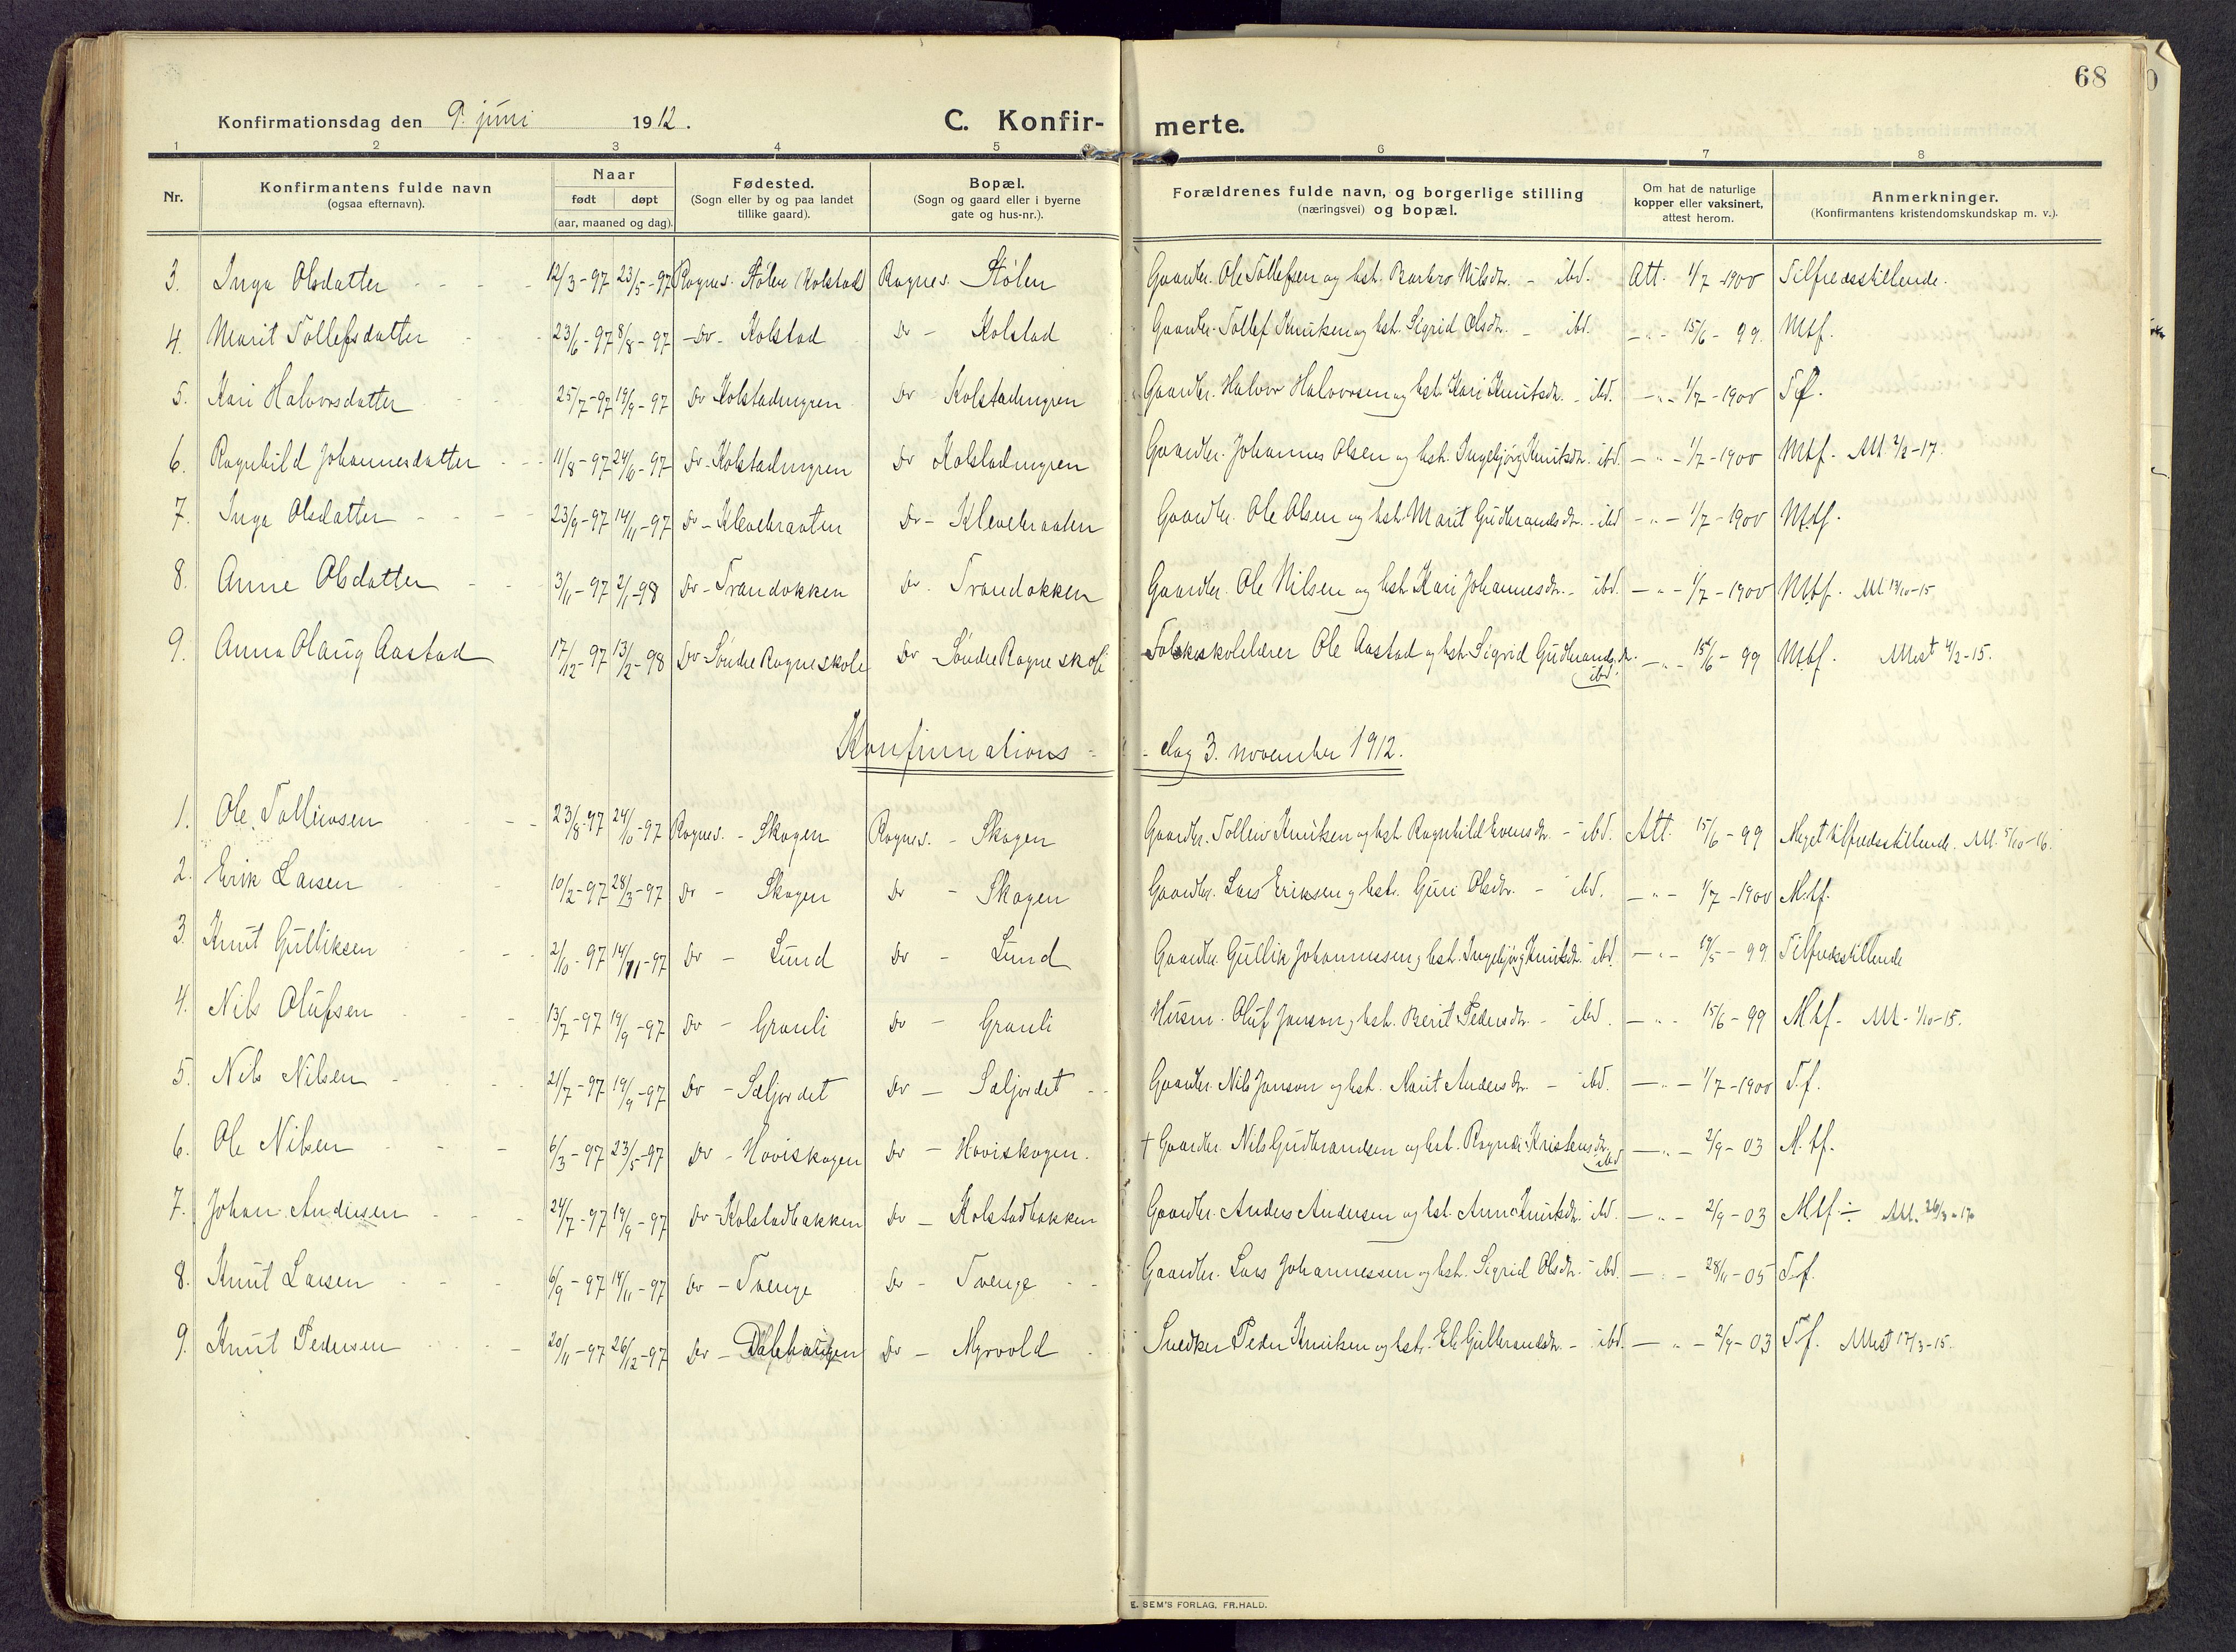 68
Konfirmationsdag den 9. juni 1912.
C. Konfir- merte.
1 2 3 4 5 6 7 8
Nr.
Konfirmantens fulde navn
(ogsaa efternavn).
Naar
født døpt
(aar, maaned og dag).
Fødested.
(Sogn eller by og paa landet
tillike gaard).
Bopæl.
(Sogn og gaard eller i byerne
gate og hus-nr.).
Forældrenes fulde navn, og borgerlige stilling
(næringsvei) og bopæl.
Om hat de naturlige
kopper eller vaksinert,
attest herom.
Anmerkninger.
(Konfirmantens kristendomskundskap m. v.).
3. Inga Olsdatter 12/3-97 23/5-97 Rognes. Stølen (Kolstad) Rognes. Stølen Gaardbr. Ole Tollefsen og hst. Barbro Nilsdr. - ibd. Att. 1/7-1900 Tilfredsstillende.
4. Marit Tollefsdatter 23/6-97 8/8-97 Do - Kolstad Do - Kolstad Gaardbr. Tollef Knutsen og hst. Sigrid Olsdr. - ibd. - " - 15/6-99. Mtf.
5. Kari Halvorsdatter 25/7-97 19/9-97 Do Kolstadmyren Do Kolstadmyren Gaardbr. Halvor Halvorsen og hst. Kari Knutsdr. - ibd. - " - 1/7-1900 Tf.
6. Ragnhild Johannesdatter 11/8-97 24/10-97 Do - Kolstadmyren Do Kolstadmyren Gaardbr. Johannes Olsen og hst. Ingebjørg Knutsdr. ibd. - " - 1/7-1900 Mtf. Att. 2/2-17.
7. Inga Olsdatter 23/9-97 14/11-97 Do - Klevebraaten Do - Klevebraaten Gaardbr. Ole Olsen og hst. Marit Gudbrandsdr. - ibd - " - 1/7-1900 Mtf.
8. Anne Olsdatter 3/11-97 2/1-98 Do - Trandokken Do. Trandokken Gaardbr. Ole Nilsen og hst. Kari Johannesdr. - ibd. - " - 1/7-1900 Mtf. Att. 13/10-15
9. Anna Olaug Aastad 17/12-97 13/2-98 Do - Søndre Rogne skole Do - Søndre Rogne skole Folkeskolelærer Ole Aastad og hst. Sigrid Gudbrandsdr. ibd. - " - 15/6-99 Mtf. Attest 4/2-15.
Konfirmations- - dag 3. november 1912.
1. Ole Tolleivsen 23/8-97 24/10-97 Rognes. - Skogen Rognes. - Skogen Gaardbr. Tolleiv Knutsen og hst. Ragnhild Evensdr. - ibd. Att. 15/6-99 Meget tilfredsstillende. Att. 5/10-16.
2. Erik Larsen 10/2-97 28/3-97 Do - Skogen Do - Skogen Gaardbr. Lars Eriksen og hst. Guri Olsdr. - ibd. - " - 1/7-1900 M.tf.
3. Knut Gulliksen 2/10-97 14/11-97 Do - Lund Do - Lund Gaardbr. Gullik Johannessen og hst. Ingebjørg Knutsdr. ibd. - " - 19/5-99. Tilfredsstillende
4. Nils Olufsen 13/7-97 19/9-97 Do - Granli Do - Granli Husm. Oluf Jonson og hst. Berit Pedersdr. - ibd. - " - 15/6-99 Mtf - Att - 1/10-15.
5. Nils Nilsen 21/7-97 19/9-97 Do - Sæljordet Do - Sæljordet Gaardbr. Nils Jonson og hst. Marit Andersdr. - ibd. - " - 1/7-1900 T.f.
6. Ole Nilsen 6/3-97 23/5-97 Do - Hoviskogen Do - Hoviskogen. † Gaardbr. Nils Gudbrandsen og hst. Rognei Kristensdr. ibd - " - 2/9-03 M.tf.
7. Johan Andersen 24/7-97 19/9-97 Do - Kolstadbakken Do - Kolstadbakken Gaardbr. Anders Andersen og hst. Anne Knutsdr. ibd. - " - 2/9-03 Mtf ÷ Att. 26/3-17
8. Knut Larsen 6/9-97 14/11-97 Do - Tvenge Do - Tvenge Gaardbr. Lars Johannessen og hst. Sigrid Olsdr. - ibd. - " - 28/11-05 T.f.
9. Knut Pedersen 20/11-97 26/12-97 Do - Dalehaugen Do - Myrvold Snedker Peder Knutsen og hst. Eli Gulbrandsdr. - ibd. - " - 2/9-03 T.f. Attest 17/3-15.
E. SEM'S FORLAG, FR.HALD.